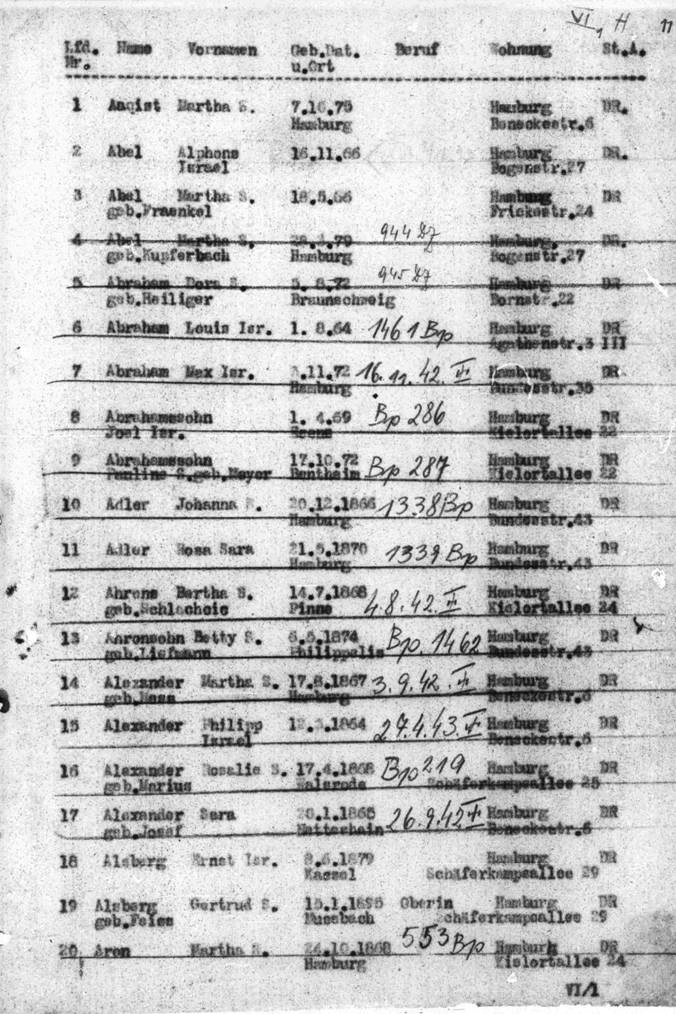 VI, H 11
Lfd. Name Vornamen Geb.Dat. Beruf Wohnung St.A.
Nr. u.Ort
1 Martha S. 7.10.75 Hamburg DR.
Hamburg Beneckestr.6
2 Abel Alphons 16.11.66 Hamburg DR.
Israel Bogenstr.27
3 Abel Martha S. 18.5.66 Hamburg DR
geb.Fraenkel Frickestr.24
4 Abel Martha S. 944 Hamburg, DR.
geb.Kupferbach Hamburg Bogenstr.27
5 Abraham Dora S. 5. 8.72 945 Hamburg DR
geb.Heiliger Braunschweig Bornstr.22
6 Abraham Louis Isr. 1. 8.64 1461 Bp Hamburg DR
Agathenstr.3 III
7 Abraham Max Isr. .11.72 16.11.42. Hamburg DR.
Hamburg Bundesstr.35
8 Abrahamssohn 1. 4.69 Bp 286 Hamburg DR
Joel Isr. Kielortallee 22
9 Abrahamssohn 17.10.72 Bp 287 Hamburg DR
Pauline S.geb.Meyer Bentheim Kielortallee 22
10 Adler Johanna S. 20.12.1866 1338 Bp Hamburg DR
Hamburg Bundesstr.43
11 Adler Rosa Sara 21.5.1870 1339 Bp Hamburg DR
Hamburg Bundesstr.43
12 Ahrens Bertha S. 14.7.1868 4.8.42. Hamburg DR
geb.Schlochoic Pinne Kielortallee 24
13 Aaronsohn Betty S. 6.5.1874 Bp. 1462 Hamburg DR
geb.Liefmann Philippolis Bundesstr.43
14 Alexander Martha S. 17.8.1867 3.9.42. Hamburg DR
Hamburg Beneckestr.6
15 Alexander Philipp 1864 27.4.43. Hamburg DR
Israel Beneckestr.6
16 Alexander Rosalie S. 17.4.1868 Bp 219 Hamburg DR
geb.Marius Walsrode Schäferkampsallee 25
17 Alexander Sara .1.1865 26.9.42 Hamburg DR
geb.Josef Beneckestr.6
18 Alsberg Ernst Isr. 8.6.1879 Hamburg DR
Kassel Schäferkampsallee 29
19 Alsberg Gertrud S. 15.1.1895 Oberin Hamburg DR
geb.Feiss Mussbach Schäferkampsallee 29
20. Aron Martha S. 24.10.1868 553 Bp Hamburg DR
Hamburg Kielortallee 24
VI/1